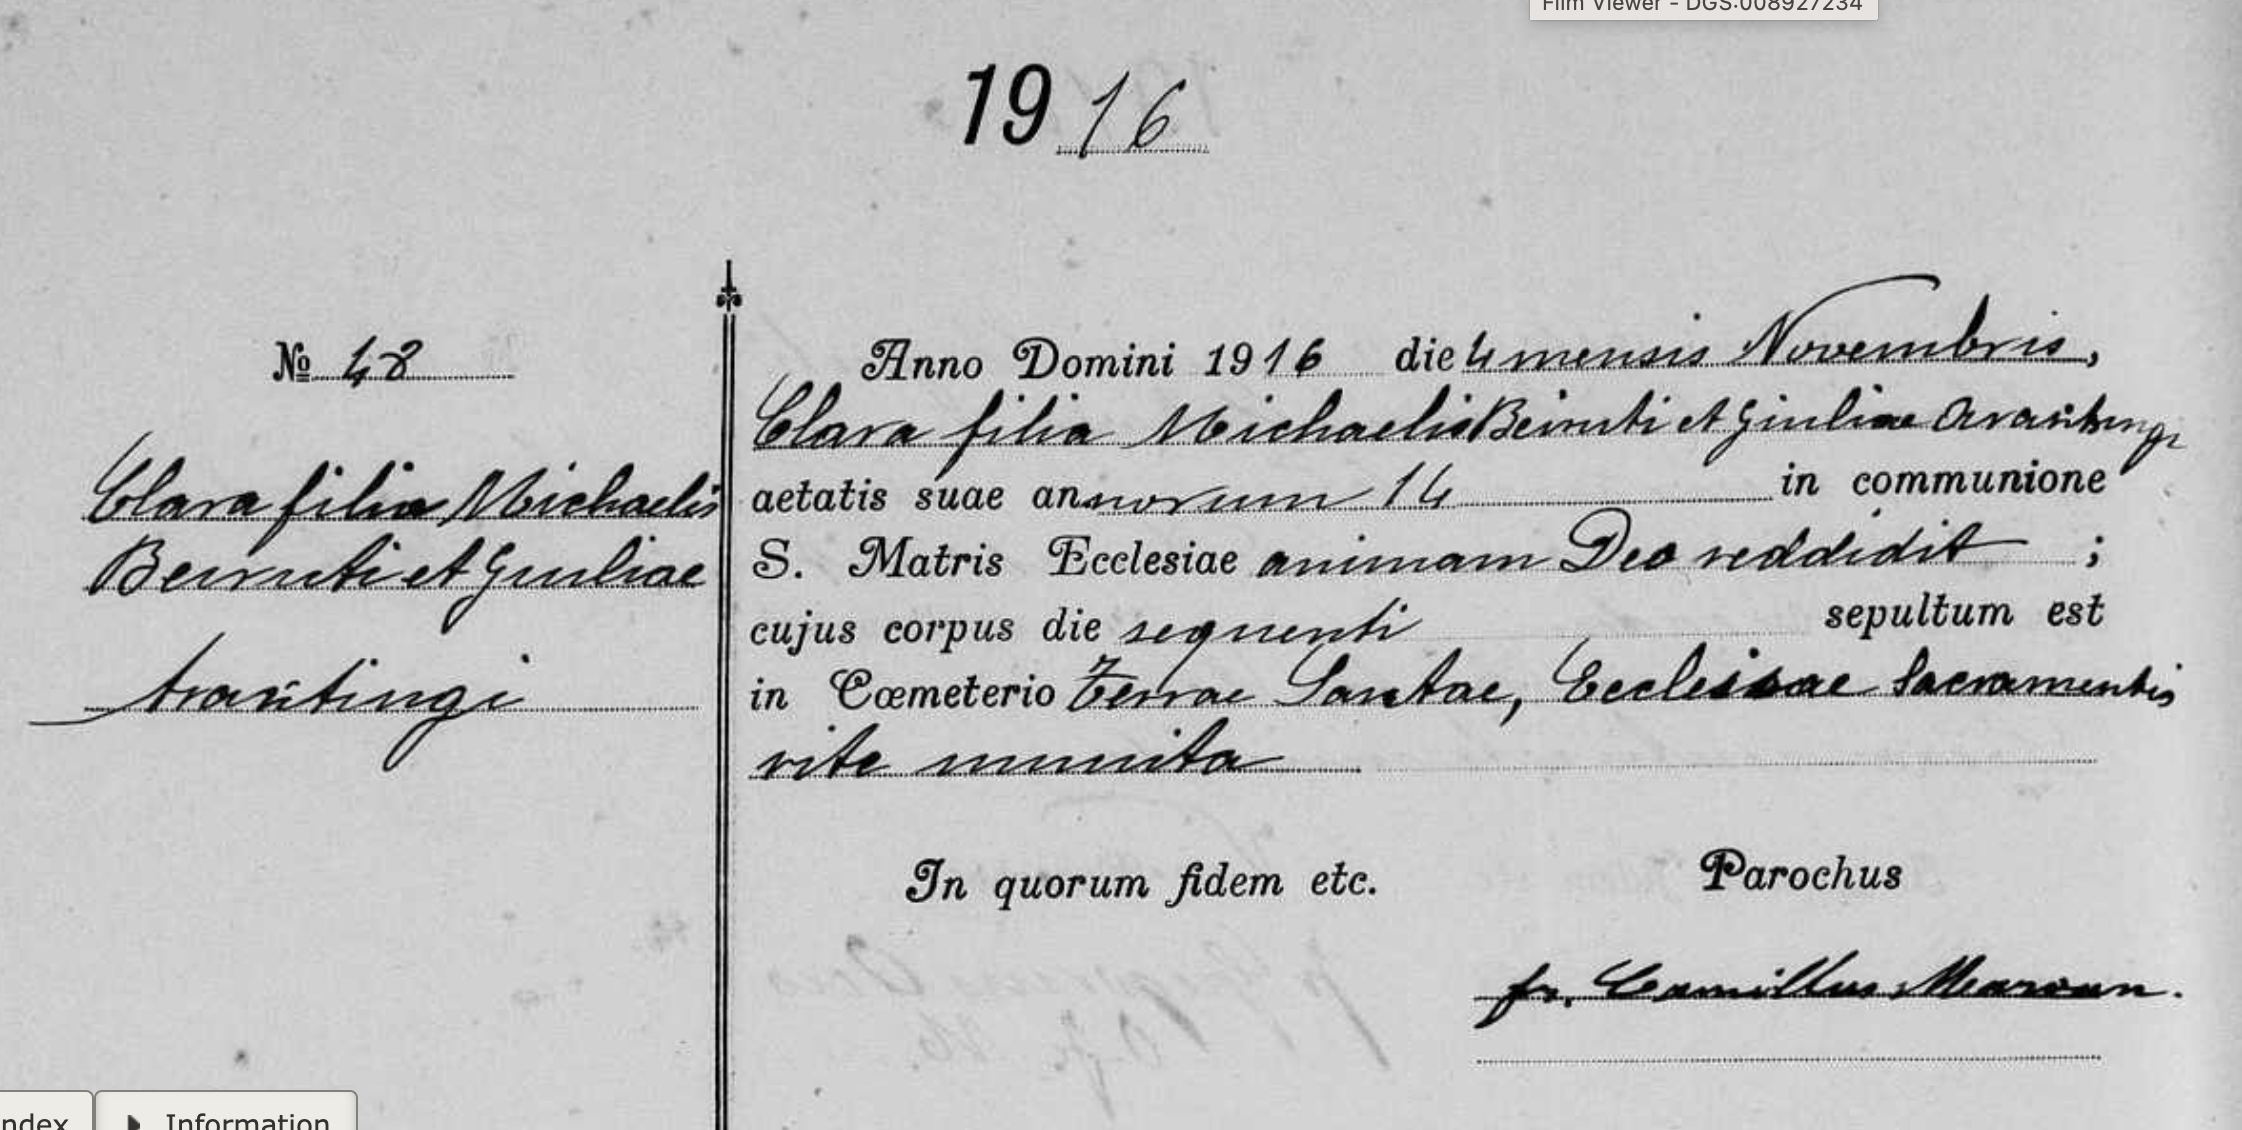 Film Viewer - DGS:008927234
1916
№ 48
Clara filia Michaelis
Beiruti et Giuliae
Arantingi
Anno Domini 1916 die 4 mensis Novembris,
Clara filia Michaelis Beiruti et Giuliae Arantingi
aetatis suae annorum 14 in communione
S. Matris Ecclesiae animam Deo reddidit ;
cujus corpus die sequenti sepultum est
in Cœmeterio Terrae Santae, Ecclesiae Sacramentis
rite munita
In quorum fidem etc. Parochus
fr. Camillus
ndex Information